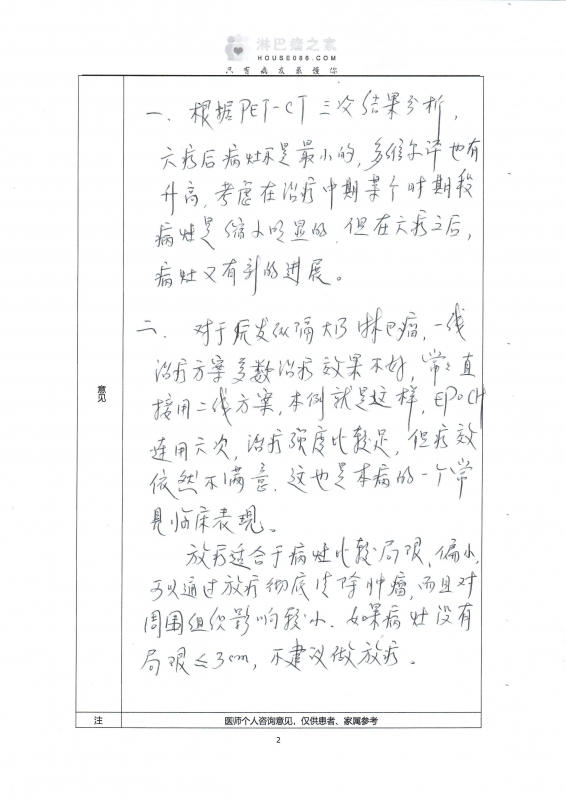 淋巴瘤之家
HOUSE086.COM
只有病友最懂你
一、根据PET-CT三次结果分析，
六疗后病灶不是最小的，多维尔评也有
升高，考虑在治疗中期某个时期段
病灶是缩小明显的，但在六疗之后，
病灶又有新的进展。
二、对于原发纵隔大B淋巴瘤，一线
治疗方案多数治疗效果不好，常常直
接用二线方案，本例就是这样，EPOCH
连用六次，治疗强度比较足，但疗效
依然不满意，这也是本病的一个常
见临床表现。
放疗适合于病灶比较局限、偏小，
可以通过放疗彻底清除肿瘤，而且对
周围组织影响较小，如果病灶没有
局限≤3cm，不建议做放疗。
意见
注
医师个人咨询意见，仅供患者、家属参考
2